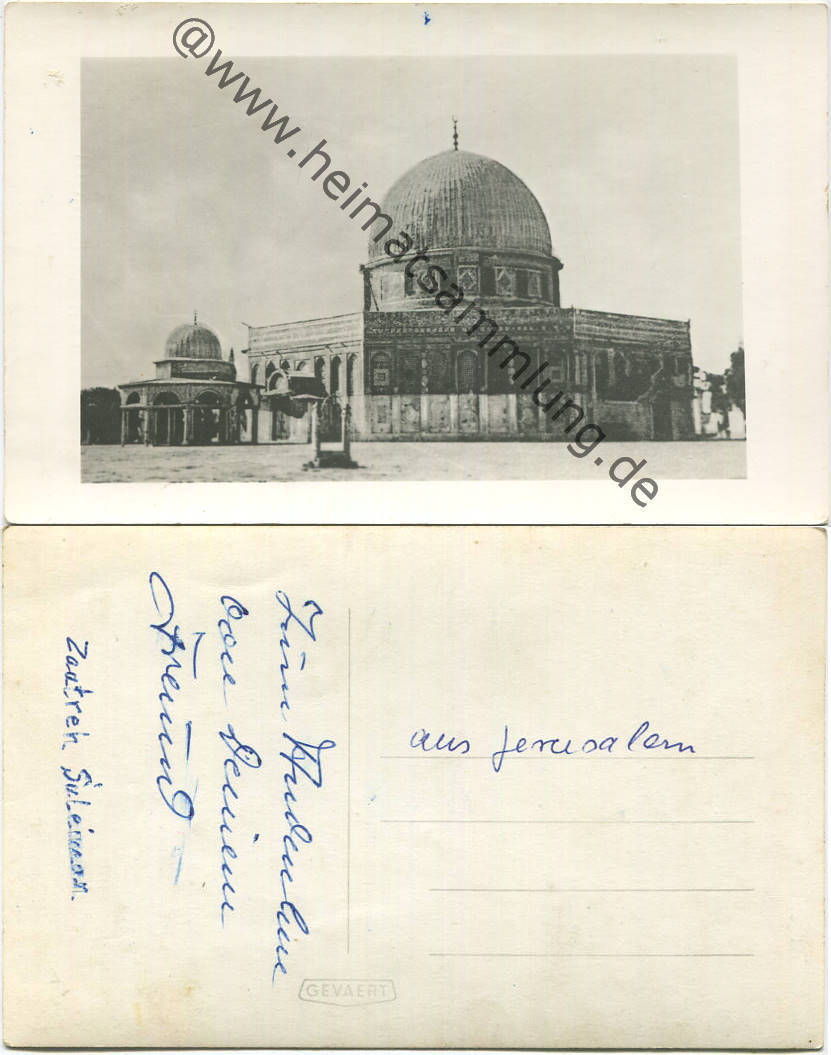 @www.heimatsammlung.de
Zum Andenken
von Deinem
Freund
Zaatreh Suleiman.
aus Jerusalem
GEVAERT